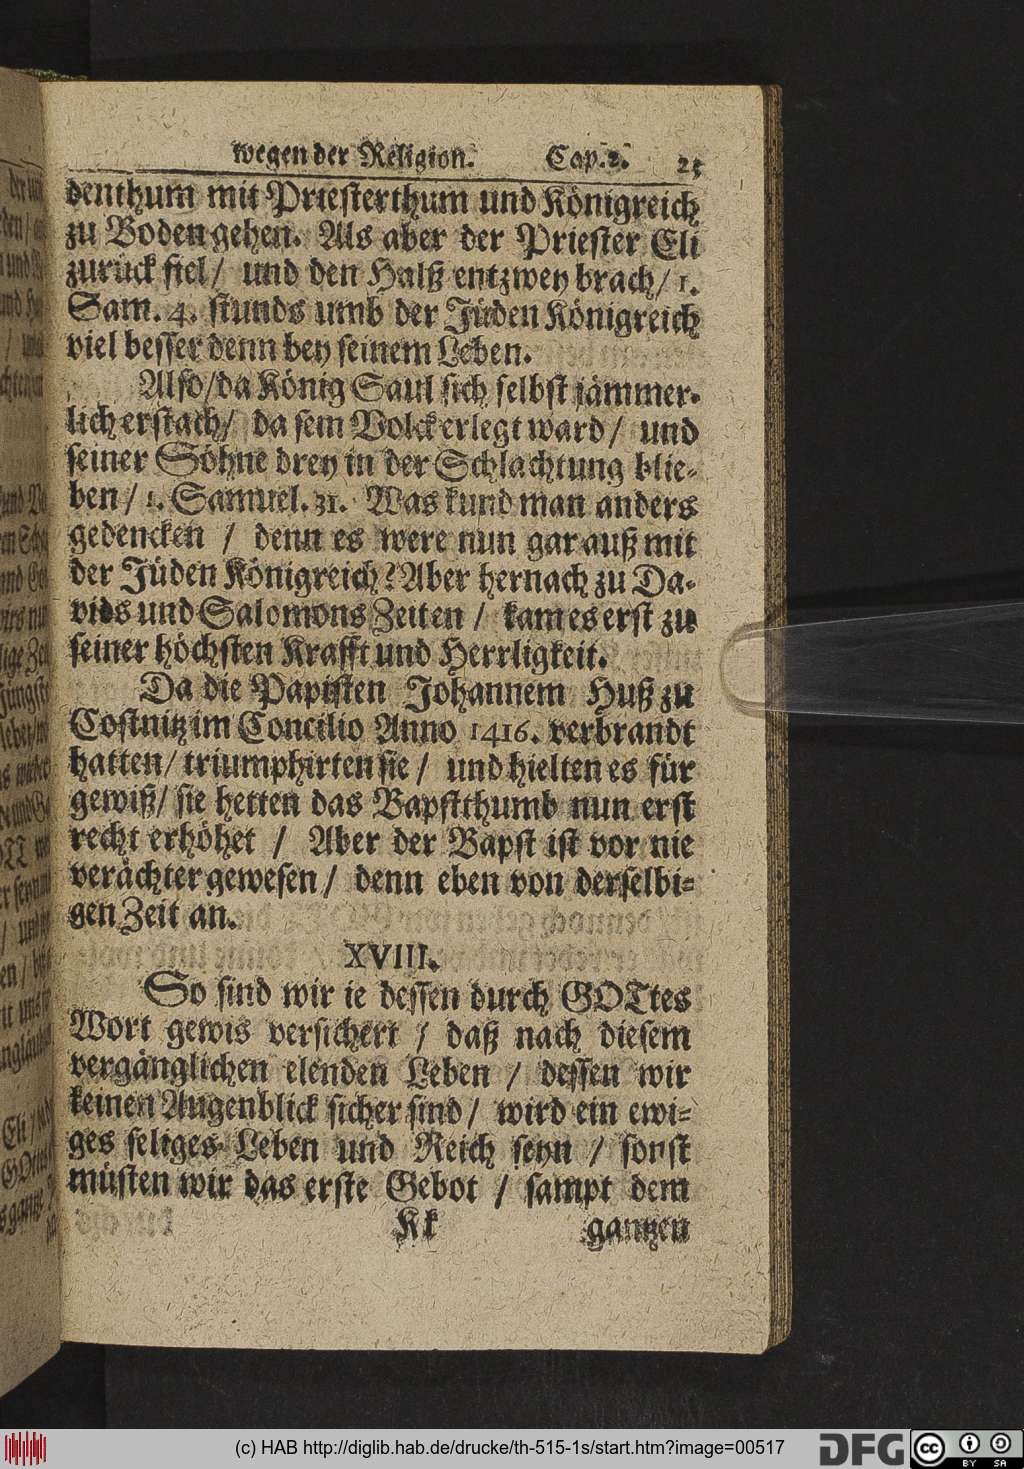 wegen der Religion. Cap. 2. 25
denthum mit Priesterthum und Königreich
zu Boden gehen. Als aber der Priester Eli
zurück fiel / und den Halß entzwey brach / 1.
Sam. 4. stunds umb der Jüden Königreich
viel besser denn bey seinem Leben.
Also / da König Saul sich selbst jämmer-
lich erstach / da sein Volck erlegt ward / und
seiner Söhne drey in der Schlachtung blie-
ben / 1. Samuel. 31. Was kund man anders
gedencken / denn es were nun gar auß mit
der Jüden Königreich? Aber hernach zu Da-
vids und Salomons Zeiten / kam es erst zu
seiner höchsten Krafft und Herrligkeit.
Da die Papisten Johannem Huß zu
Costnitz im Concilio Anno 1416. verbrandt
hatten / triumphirten sie / und hielten es für
gewiß / sie hetten das Bapstthumb nun erst
recht erhöhet / Aber der Bapst ist vor nie
verächter gewesen / denn eben von derselbi-
gen Zeit an.
XVIII.
So sind wir ie dessen durch GOTtes
Wort gewis versichert / daß nach diesem
vergänglichen elenden Leben / dessen wir
keinen Augenblick sicher sind / wird ein ewi-
ges seliges Leben und Reich seyn / sonst
müsten wir das erste Gebot / sampt dem
Kk gantzen
(c) HAB http://diglib.hab.de/drucke/th-515-1s/start.htm?image=00517
DFG
cc
BY SA